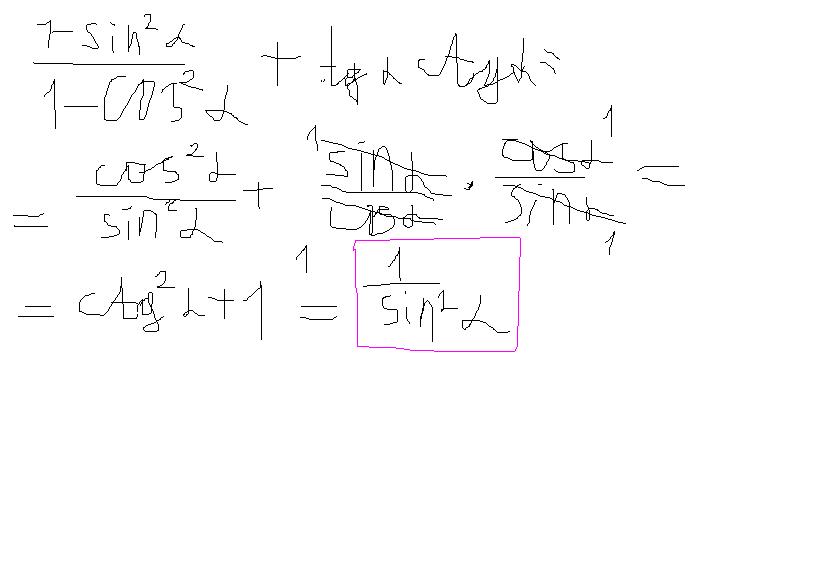 (1-sin²α)/(1-cos²α) + tg α ctg α =
= cos²α/sin²α + sin α/cos α · cos α/sin α =
= ctg²α + 1 = 1/sin²α